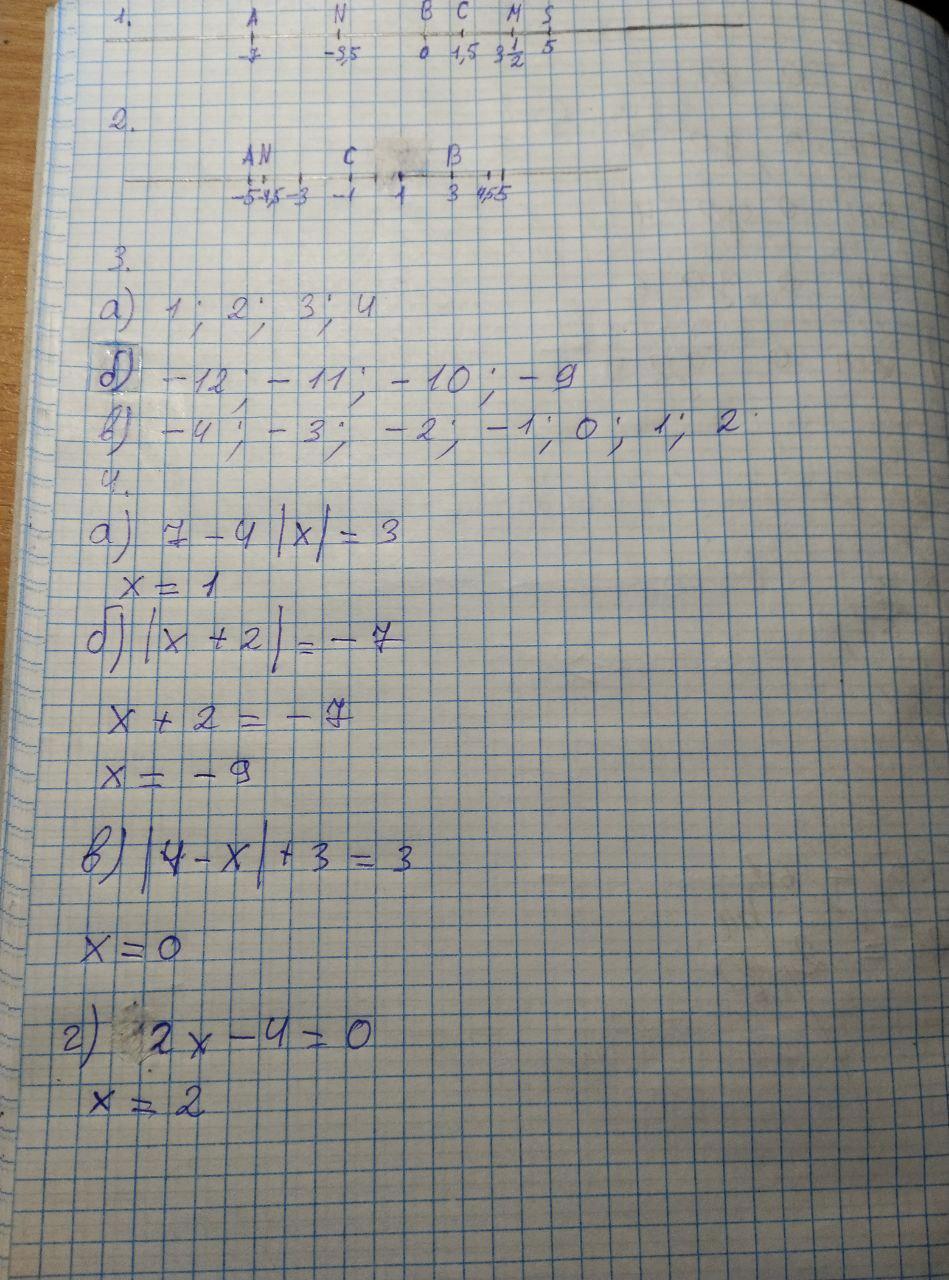 1.
A N B C M S
-7 -3,5 0 1,5 3 1/2 5
2.
A N C B
-5 -4,5 -3 -1 1 3 4,5 5
3.
а) 1; 2; 3; 4
б) -12; -11; -10; -9
в) -4; -3; -2; -1; 0; 1; 2
4.
а) 7 - 4 |x| = 3
x = 1
б) |x + 2| = -7
x + 2 = -7
x = -9
в) |4 - x| + 3 = 3
x = 0
г) 2x - 4 = 0
x = 2